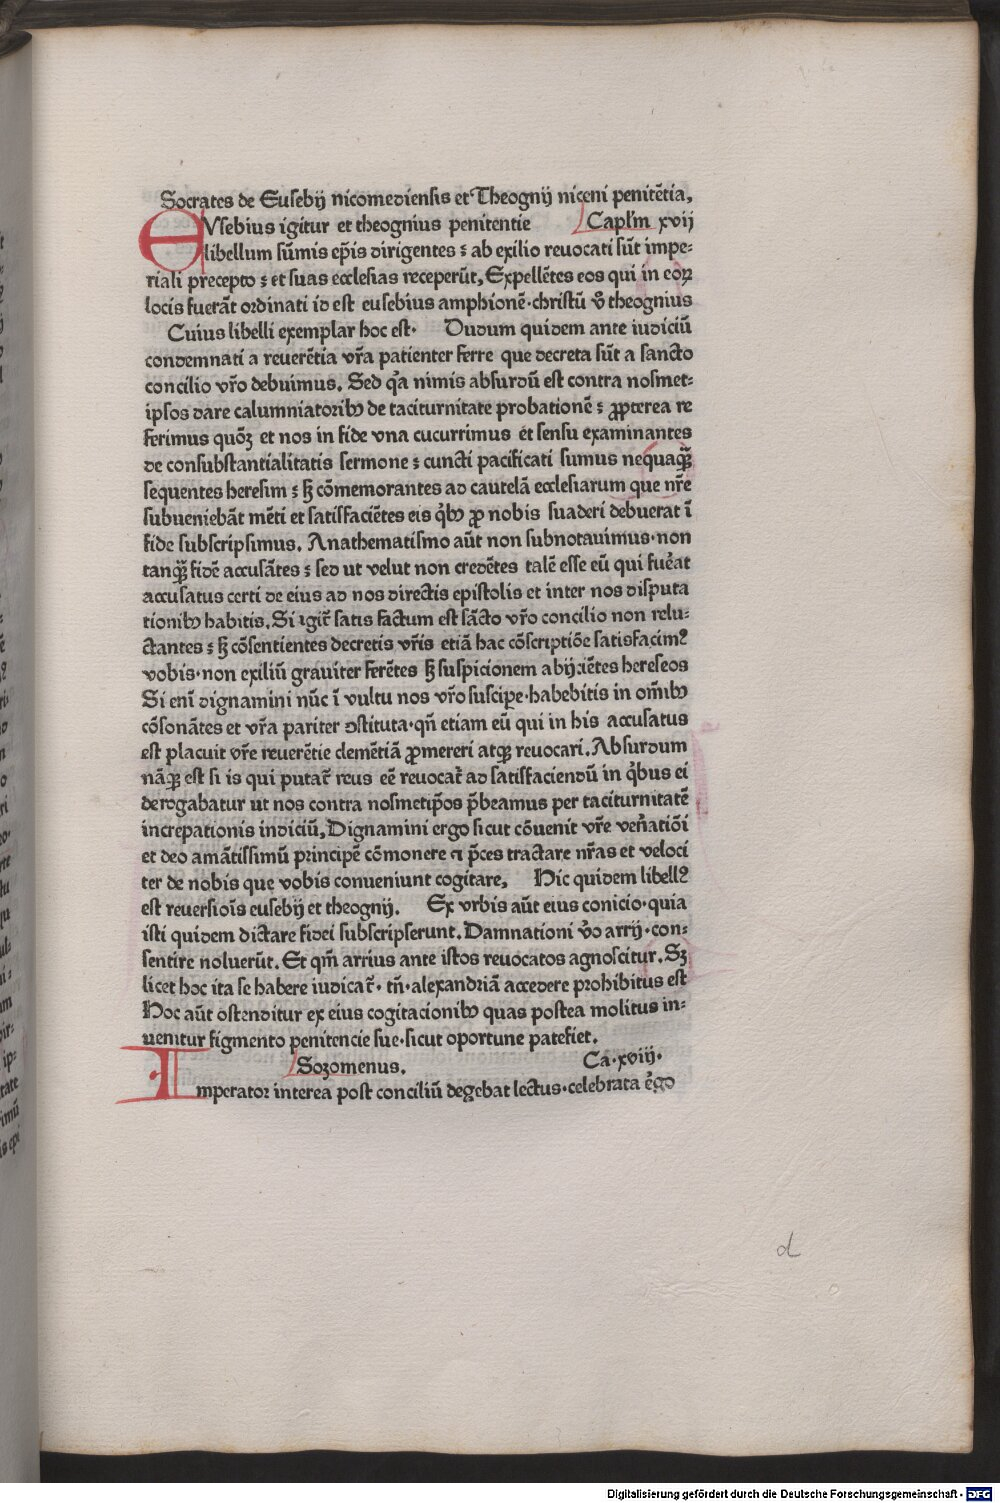 Socrates de Eusebij nicomediensis et Theognij niceni penitētia.
EVsebius igitur et theognius penitentie Capl̄m xvij
libellum sūmis ep̄is dirigentes : ab exilio reuocati sūt impe-
riali precepto : et suas ecclesias receperūt. Expellētes eos qui in eoꝝ
locis fuerāt ordinati id est eusebius amphionē · christū v̄o theognius
Cuius libelli exemplar hoc est · Dudum quidem ante iudiciū
condemnati a reuerētia vr̄a patienter ferre que decreta sūt a sancto
concilio vr̄o debuimus. Sed qͣa nimis absurdū est contra nosmet-
ipsos dare calumniatoribꝫ de taciturnitate probationē : ꝓpterea re
ferimus quōꝫ et nos in fide vna cucurrimus et sensu examinantes
de consubstantialitatis sermone : cuncti pacificati sumus nequaqꝫ̄
sequentes heresim : sꝫ cōmemorantes ad cautelā ecclesiarum que nr̄e
subueniebāt mēti et satisfaciētes eis qͥbꝫ ꝓ nobis suaderi debuerat ī
fide subscripsimus. Anathematismo aūt non subnotauimus · non
tanqꝫ̄ fidē accusātes : sed ut velut non credētes talē esse eū qui fuēat
accusatus certi de eius ad nos directis epistolis et inter nos disputa
tionibꝫ habitis. Si igit̄ satis factum est sācto vr̄o concilio non relu-
ctantes : sꝫ cōsentientes decretis vr̄is etiā hac cōscriptiōe satisfacimꝰ
vobis · non exiliū grauiter ferētes sꝫ suspicionem abijciētes hereseos
Si enī dignamini nūc ī vultu nos vr̄o suscipe · habebitis in om̄ibꝫ
cōsonātes et vr̄a pariter ꝯstituta · qn̄ etiam eū qui in his accusatus
est placuit vr̄e reuerētie clemētiā ꝓmereri atqꝫ reuocari. Absurdum
nāqꝫ est si is qui putat̄ reus eē reuocat̄ ad satisfaciendū in qͥbus ei
derogabatur ut nos contra nosmetip̄os p̄beamus per taciturnitatē
increpationis indiciū. Dignamini ergo sicut cōuenit vr̄e ven̄atiōi
et deo amātissimū principē cōmonere ⁊ p̄ces tractare nr̄as et veloci
ter de nobis que vobis conueniunt cogitare. Hic quidem libellꝰ
est reuersiōis eusebij et theognij. Ex vrbis aūt eius conicio · quia
isti quidem dictare fidei subscripserunt. Damnationi v̄o arrij · con-
sentire noluerūt. Et qm̄ arrius ante istos reuocatos agnoscitur. Sꝫ
licet hoc ita se habere iudicat̄ · tn̄ · alexandriā accedere prohibitus est
Hoc aūt ostenditur ex eius cogitacionibꝫ quas postea molitus in-
uenitur figmento penitencie sue · sicut oportune patefiet.
Sozomenus. Ca · xviij ·
Imperator interea post conciliū degebat lectus · celebrata ēgo
d
Digitalisierung gefördert durch die Deutsche Forschungsgemeinschaft - DFG